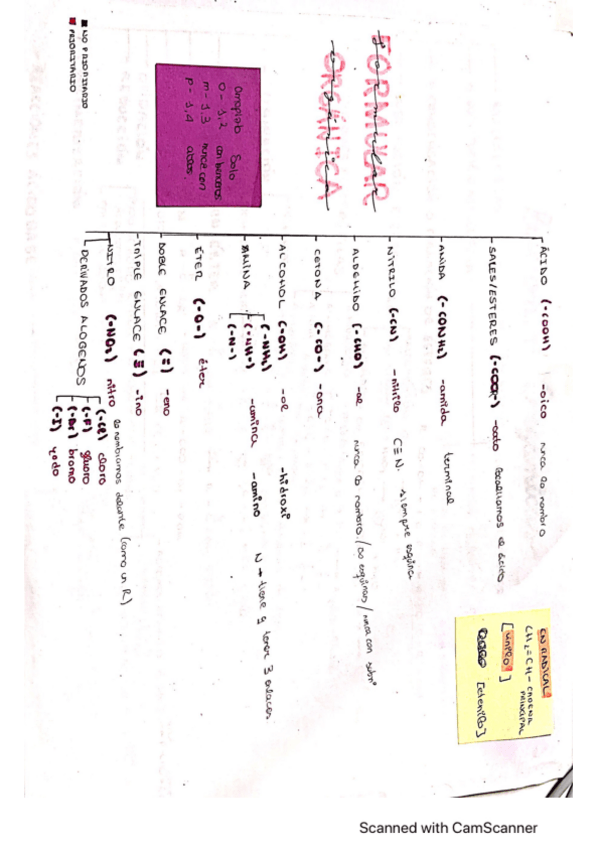 FORMULAR
formular
ORGÁNICA
orgánica
■ NO PRIORITARIO
■ PRIORITARIO
Solo
o - 1,2 con bencenos
m - 1,3 nunca con
p - 1,4
- ÁCIDO (-COOH) -oico nunca lo nombro
- SALES/ESTERES (-COO-) -ato
- AMIDA (-CONH₂) -amida terminal
- NITRILO (-CN) -nitrilo C≡N. siempre esquina
- ALDEHIDO (-CHO) -al nunca lo nombro / en esquinas / nunca con
- CETONA (-CO-) -ona
- ALCOHOL (-OH) -ol -hidroxi
- AMINA (-NH₂) (-NH-) (-N-) -amina -amino N → tiene q tener 3 enlaces
- ÉTER (-O-) éter
- DOBLE ENLACE (=) -eno
- TRIPLE ENLACE (≡) -ino
- NITRO (-NO₂) nitro lo nombramos delante (como un R)
DERIVADOS ALOGENOS (-Cl) cloro
(-F) fluoro
(-Br) bromo
(-I) yodo
EN RADICAL
CH₂=CH- CADENA PRINCIPAL
[vinilo]
[etenilo]
Scanned with CamScanner